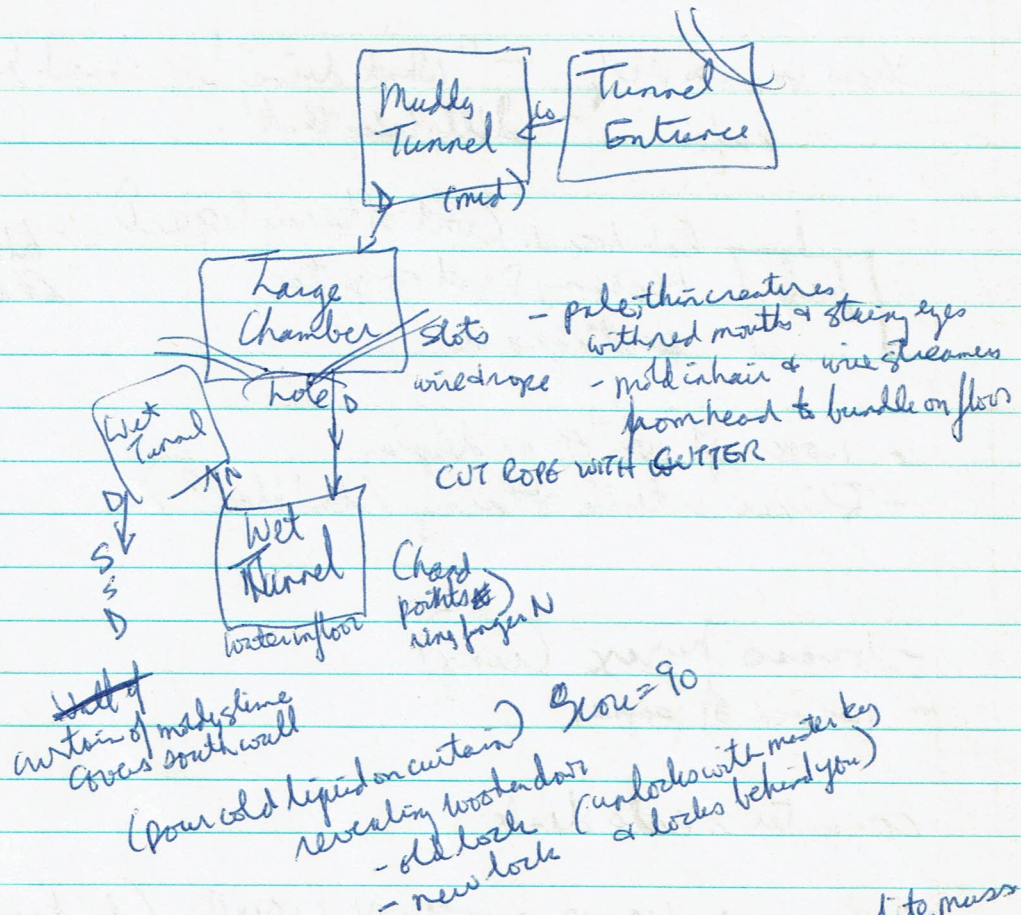 Tunnel
Entrance
Muddy
Tunnel
D (mud)
Large
Chamber
slots
hole
D
- pale, thin creatures
with red mouths & staring eyes
wire & rope - mold in hair & wire streamers
from head to bundle on floor
CUT ROPE WITH CUTTER
Wet
Tunnel
N
D
S
S
D
Wet
Tunnel
water in floor
(hand
points
ring finger N
Wall of
curtain of moldy slime
covers south wall
Score = 90
(pour cold liquid on curtain)
revealing wooden door
- old lock (unlocks with master key
- new lock & locks behind you)
to mass